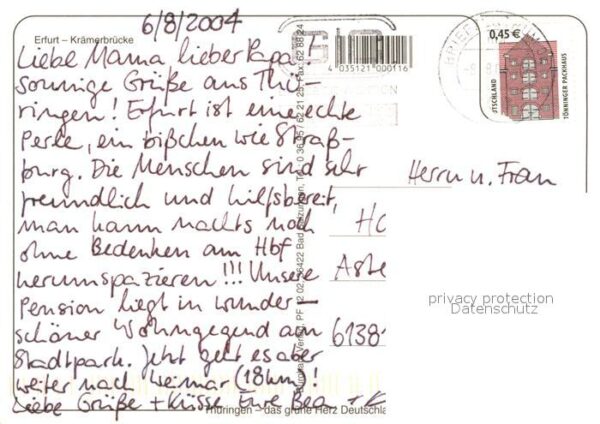 6/8/2004
Erfurt – Krämerbrücke
Liebe Mama, lieber Papa!
sonnige Grüße aus Thü-
ringen! Erfurt ist eine echte
Perle, ein bißchen wie Straß-
burg. Die Menschen sind sehr
freundlich und hilfsbereit,
man kann nachts noch
ohne Bedenken am Hbf
herumspazieren!!! Unsere
Pension liegt in wunder-
schöner Wohngegend am
Stadtpark. Jetzt geht es aber
weiter nach Weimar (18km)!
Liebe Grüße + Küsse Eure Bea + K
Thüringen – das grüne Herz Deutschla
4 035121 000116
0,45 €
TÖNNINGER PACKHAUS
Herrn u. Frau
Ho
Aste
6138
privacy protection
Datenschutz